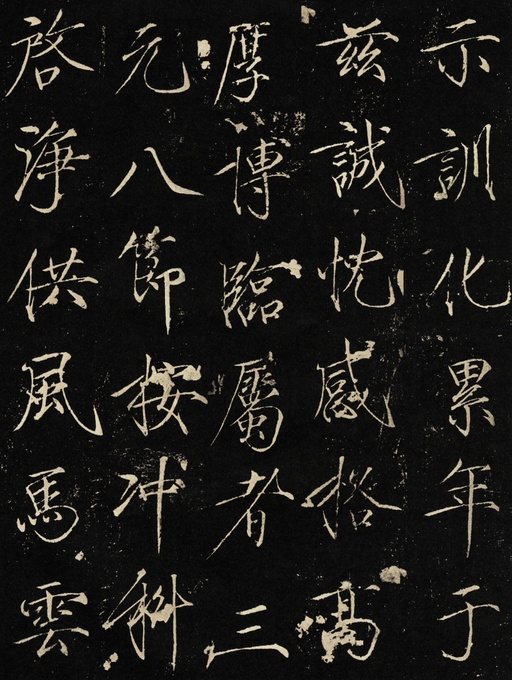 示訓化累年于
兹誠忱感格高
厚博臨屬者三
元八節按冲科
啓淨供風馬雲